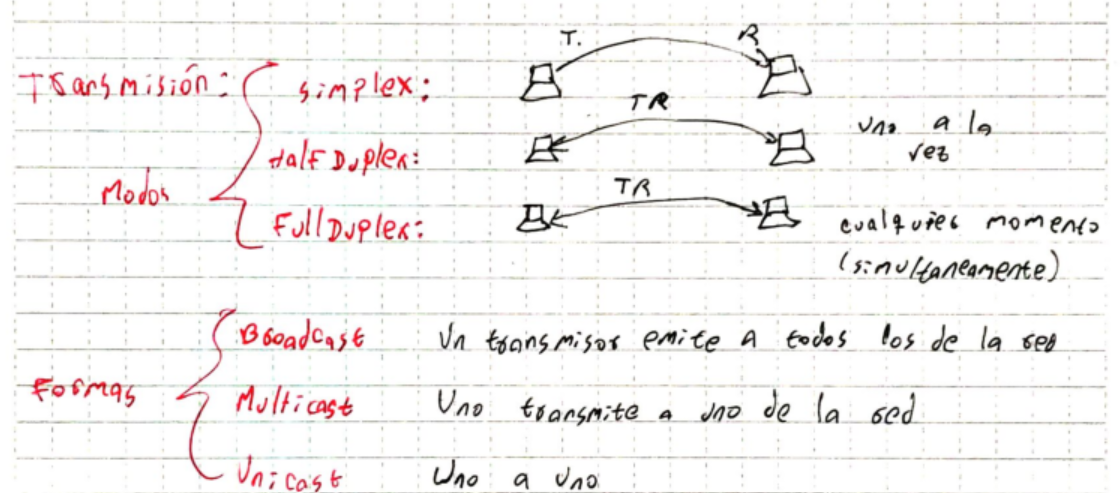 T. R
Transmisión: simplex:
TR
Half Duplex: uno a la vez
Modos
TR
Full Duplex: cualquier momento
(simultaneamente)
Broadcast Un transmisor emite a todos los de la red
Formas Multicast Uno transmite a uno de la red
Unicast Uno a uno